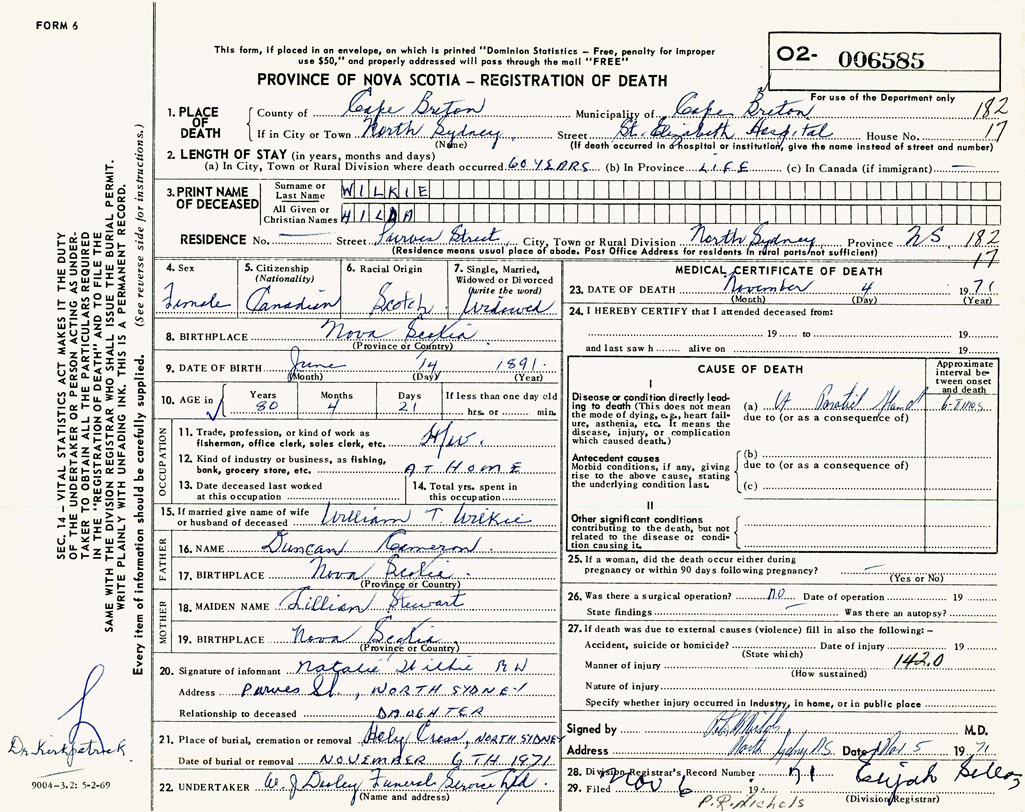 FORM 6
This form, if placed in an envelope, on which is printed "Dominion Statistics – Free, penalty for improper
use $50," and properly addressed will pass through the mail "FREE"
PROVINCE OF NOVA SCOTIA – REGISTRATION OF DEATH
O2- 006585
For use of the Department only
1. PLACE OF DEATH
County of Cape Breton Municipality of Cape Breton 182
If in City or Town North Sydney Street St. Elizabeth Hospital House No. 17
(Name) (If death occurred in a hospital or institution, give the name instead of street and number)
2. LENGTH OF STAY (in years, months and days)
(a) In City, Town or Rural Division where death occurred 60 YEARS (b) In Province LIFE (c) In Canada (if immigrant) —
3. PRINT NAME OF DECEASED
Surname or Last Name WILKIE
All Given or Christian Names HILDA
RESIDENCE No. — Street Purves Street City, Town or Rural Division North Sydney Province NS 182
(Residence means usual place of abode. Post Office Address for residents in rural parts not sufficient) 17
4. Sex Female
5. Citizenship (Nationality) Canadian
6. Racial Origin Scotch
7. Single, Married, Widowed or Divorced (write the word) Widowed
8. BIRTHPLACE Nova Scotia
(Province or Country)
9. DATE OF BIRTH June 14 1891
(Month) (Day) (Year)
10. AGE in Years 80 Months 4 Days 21 If less than one day old hrs. or min.
OCCUPATION
11. Trade, profession, or kind of work as fisherman, office clerk, sales clerk, etc. H/w.
12. Kind of industry or business, as fishing, bank, grocery store, etc. AT HOME
13. Date deceased last worked at this occupation
14. Total yrs. spent in this occupation
15. If married give name of wife or husband of deceased William T. Wilkie
FATHER
16. NAME Duncan Cameron
17. BIRTHPLACE Nova Scotia
(Province or Country)
MOTHER
18. MAIDEN NAME Lillian Stewart
19. BIRTHPLACE Nova Scotia
(Province or Country)
20. Signature of informant Natalie Wilkie RN
Address Purves St., NORTH SYDNEY
Relationship to deceased DAUGHTER
21. Place of burial, cremation or removal Holy Cross, NORTH SYDNEY
Date of burial or removal NOVEMBER 6TH 1971
22. UNDERTAKER W. J. Dooley Funeral Service Ltd
(Name and address)
MEDICAL CERTIFICATE OF DEATH
23. DATE OF DEATH November 4 1971
(Month) (Day) (Year)
24. I HEREBY CERTIFY that I attended deceased from:
19 to 19
and last saw h alive on 19
CAUSE OF DEATH
Approximate interval between onset and death
I
Disease or condition directly leading to death (This does not mean the mode of dying, e.g., heart failure, asthenia, etc. It means the disease, injury, or complication which caused death.)
(a) Ca Parotid Gland
due to (or as a consequence of)
Antecedent causes
Morbid conditions, if any, giving rise to the above cause, stating the underlying condition last.
(b)
due to (or as a consequence of)
(c)
II
Other significant conditions
contributing to the death, but not related to the disease or condition causing it.
25. If a woman, did the death occur either during pregnancy or within 90 days following pregnancy? —
(Yes or No)
26. Was there a surgical operation? no Date of operation 19
State findings Was there an autopsy?
27. If death was due to external causes (violence) fill in also the following: –
Accident, suicide or homicide? Date of injury 19
(State which)
Manner of injury 142.0
(How sustained)
Nature of injury
Specify whether injury occurred in Industry, in home, or in public place
Signed by M.D.
Address North Sydney N.S. Date Nov. 5 1971
28. Division Registrar's Record Number 71
29. Filed Nov 6 19
(Division Registrar)
P.R. Nichols
SEC. 14 – VITAL STATISTICS ACT MAKES IT THE DUTY
OF THE UNDERTAKER OR PERSON ACTING AS UNDER-
TAKER TO OBTAIN ALL THE PARTICULARS REQUIRED
IN THE "REGISTRATION OF DEATH" AND TO FILE THE
SAME WITH THE DIVISION REGISTRAR WHO SHALL ISSUE THE BURIAL PERMIT.
WRITE PLAINLY WITH UNFADING INK. THIS IS A PERMANENT RECORD.
Every item of information should be carefully supplied. (See reverse side for instructions.)
Dr. Kirkpatrick
9004–3.2: 5-2-69